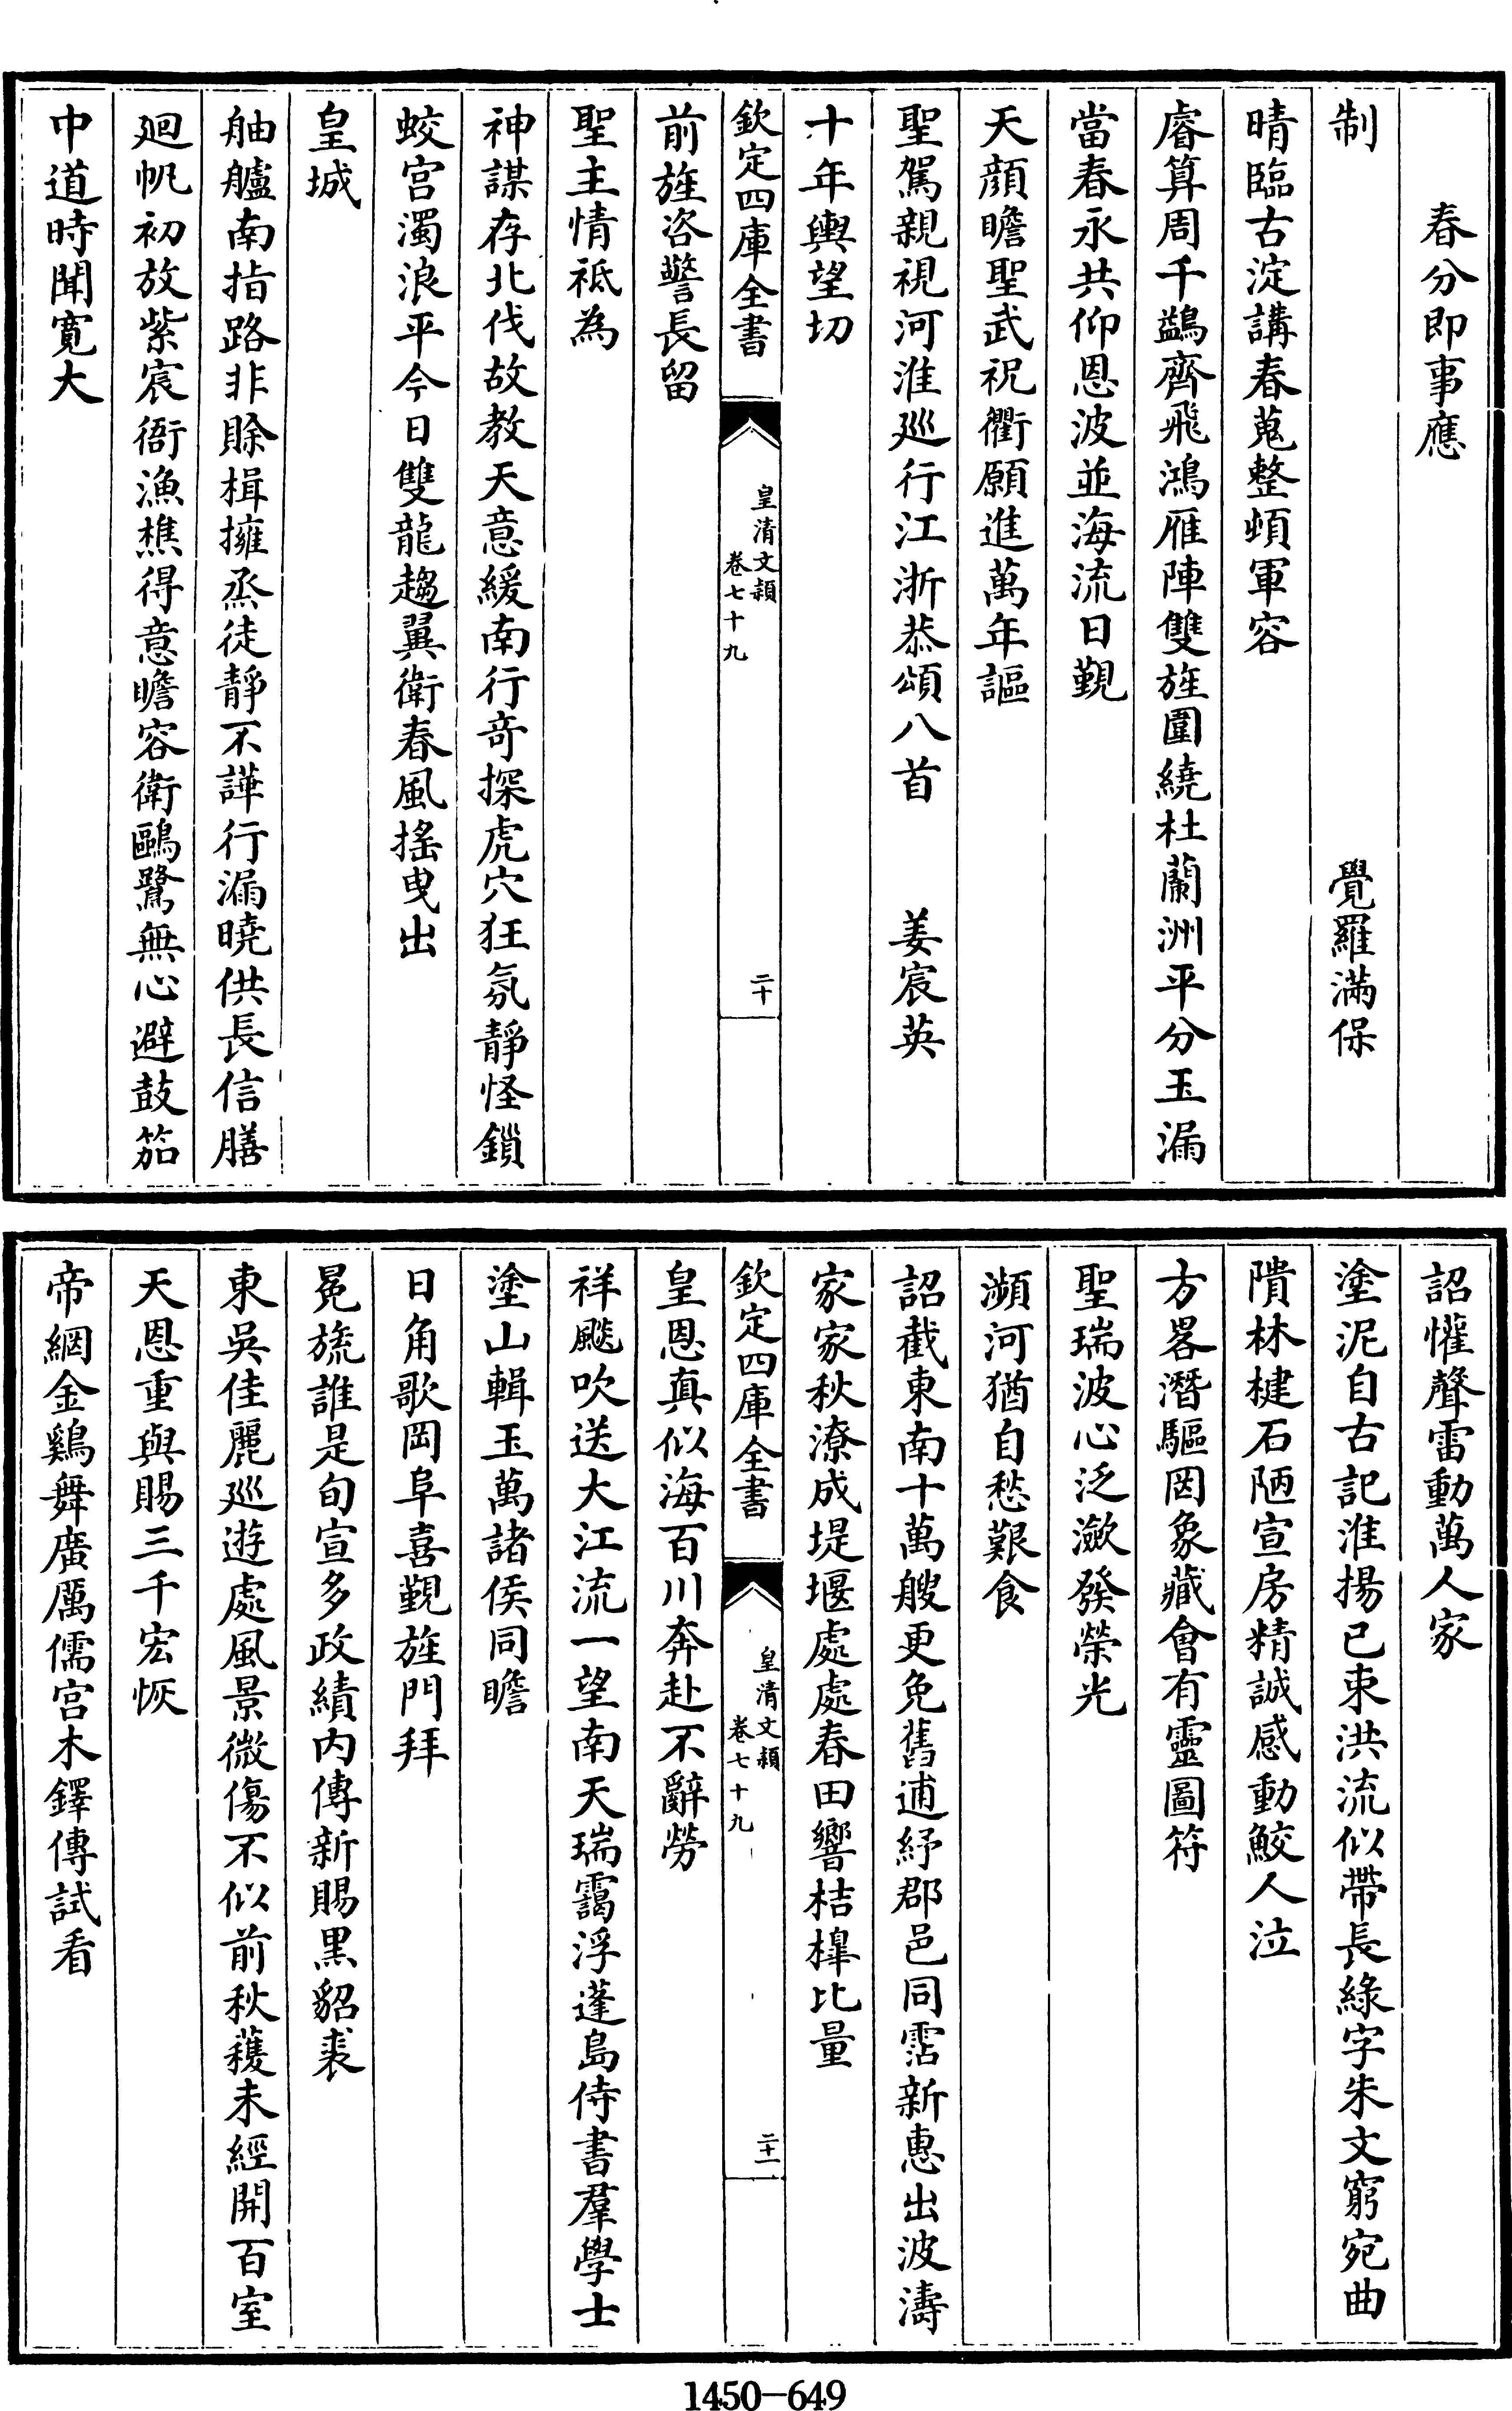 春分即事應
制　覺羅滿保
晴臨古淀講春蒐整頓軍容
睿算周千鷁齊飛鴻雁陣雙旌圍繞杜蘭洲平分玉漏
當春永共仰恩波並海流日覲
天顏瞻聖武祝衢願進萬年謳
聖駕親視河淮廵行江浙恭頌八首　姜宸英
十年輿望切
欽定四庫全書
皇清文頴
卷七十九
二十
前旌咨警長留
聖主情祇為
神謀存北伐故教天意緩南行奇探虎穴狂氛靜怪鎖
蛟宮濁浪平今日雙龍趨翼衛春風搖曳出
皇城
舳艫南指路非賒楫擁烝徒靜不譁行漏曉供長信膳
廻帆初放紫宸衙漁樵得意瞻容衛鷗鷺無心避鼓笳
中道時聞寛大
詔懽聲雷動萬人家
塗泥自古記淮揚已束洪流似帶長綠字朱文窮宛曲
隤林楗石陋宣房精誠感動鮫人泣
方畧潛驅罔象藏會有靈圖符
聖瑞波心泛瀲發榮光
瀕河猶自愁艱食
詔截東南十萬艘更免舊逋紓郡邑同霑新惠出波濤
家家秋潦成堤堰處處春田響桔橰比量
欽定四庫全書
皇清文頴
卷七十九
二十一
皇恩真似海百川奔赴不辭勞
祥飇吹送大江流一望南天瑞靄浮蓬島侍書羣學士
塗山輯玉萬諸侯同瞻
日角歌岡阜喜覲旌門拜
冕旒誰是旬宣多政績內傳新賜黑貂裘
東吳佳麗廵遊處風景微傷不似前秋穫未經開百室
天恩重與賜三千宏恢
帝網金鷄舞廣厲儒宮木鐸傳試看
1450-649